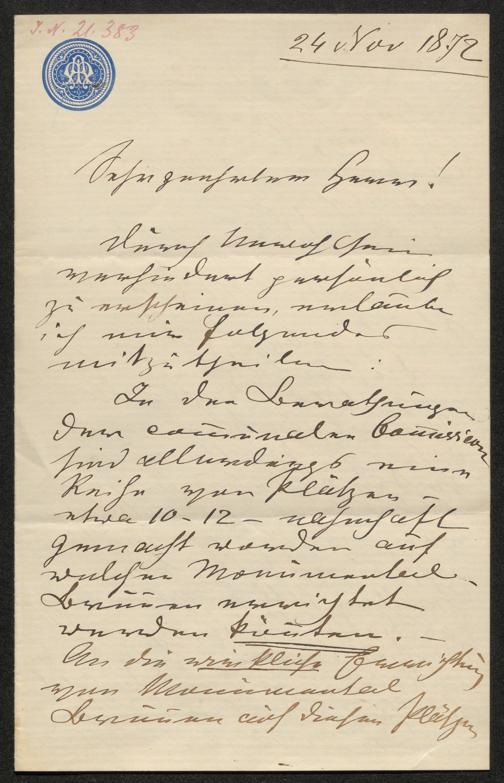 J. N. 21.383
24 Nov 1872
Sehr geehrtem Herrn!
Durch Unwohlsein
verhindert persönlich
zu erscheinen, erlaube
ich mir folgendes
mitzutheilen :
In den Berathungen
der communalen Com̅ission
sind allerdings eine
Reihe von Plätzen –
etwa 10-12 – namhaft
gemacht worden auf
welchen Monumental-
Brun̅en errichtet
werden kön̅ten. –
An die wirkliche Errichtung
von Monumental
Brun̅en auf diesen Plätzen